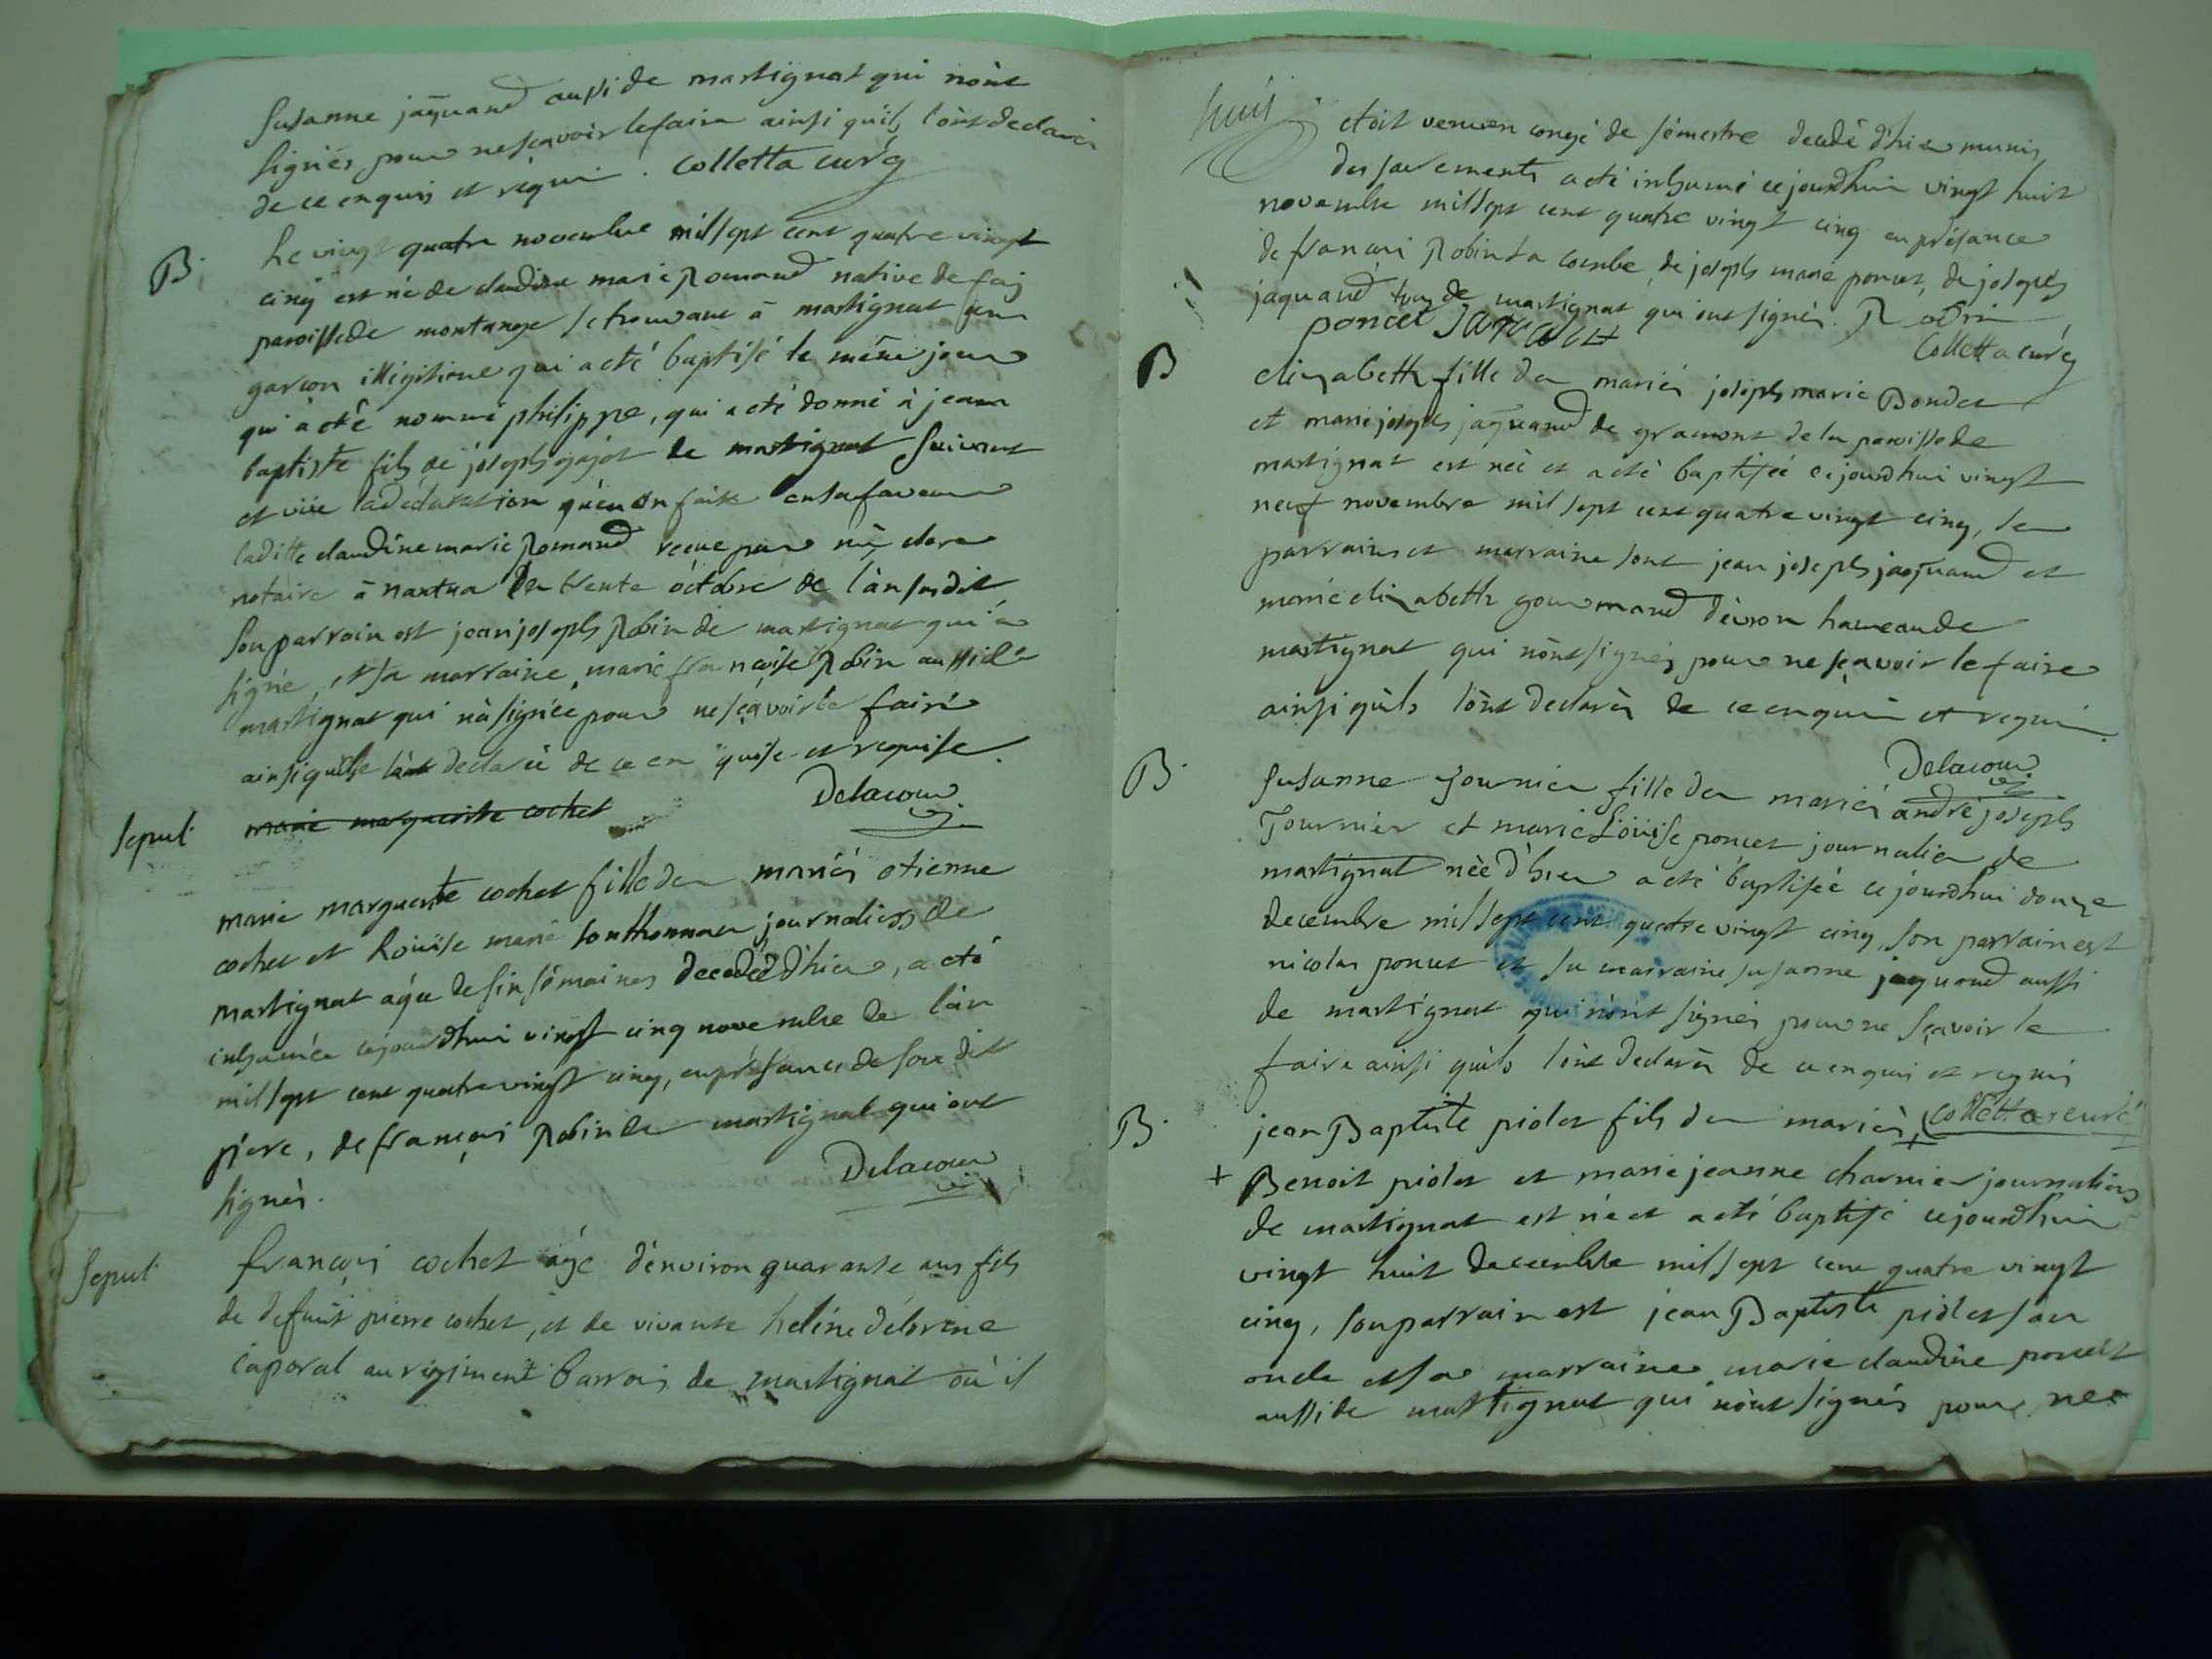 Susanne jaquand aussi de martignat qui n'ont
signés pour ne sçavoir le faire ainsi qu'ils l'ont declaré
de ce enquis et requis. Colletta curé
B. Le vingt quatre novembre mil sept cent quatre vingt
cinq est né de claudine marie Romand native de
paroisse de montange se trouvant à martignat un
garcon illégitime qui a eté baptisé le même jour
qui a eté nommé philippe, qui a eté donné à jean
baptiste fils de joseph gajot de martignat suivant
et vüe la declaration qu'en on faite en sa faveur
laditte claudine marie Romand recue par
notaire à nantua le trente octobre de l'an susdit
son parrain est jean joseph Robin de martignat qui a
signé, et sa marraine marie francoise Robin aussi de
martignat qui n'a signée pour ne sçavoir le faire
ainsi quelle l'a declaré de ce en quise et requise.
Delacour
Sepul. marie marguerite cochet
marie marguerite cochet fille des mariés etienne
cochet et Loüise marie sonthonnax journaliers de
martignat agée de six sémaines decedéé d'hier, a eté
inhumée cejourdhui vingt cinq novembre de l'an
mil sept cent quatre vingt cinq, en présance de son dit
pere, de françois Robin de martignat qui ont
signés. Delacour
Sepul. françois cochet agé d'environ quarante ans fils
de defunt pierre cochet, et de vivante heléne délorine
caporal au regiment barrois de martignat où il
huit
etoit venu en congé de sémestre decedé d'hier munis
des sacrements a eté inhumé cejourdhui vingt huit
novembre mil sept cent quatre vingt cinq en présance
de francois Robin La combe, de joseph marie poncet, de joseph
jaquand tous de martignat qui ont signés. Robin
poncet Jaquand Colletta curé
B elizabeth fille des mariés joseph marie Bondet
et marie joseph jaquand de gramont de la paroisse de
martignat est née et a eté baptiséé cejourdhui vingt
neuf novembre mil sept cent quatre vingt cinq, les
parrain et marraine sont jean joseph jaquand et
marie elizabeth gourmand d'evron hameau de
martignat qui n'ont signés pour ne sçavoir le faire
ainsi qu'ils l'ont declarés de ce enquis et requis.
Delacour
B. Susanne Tournier fille des mariés andré joseph
Tournier et marie Loüise poncet journalier de
martignat née d'hier a eté baptiséé cejourdhui douze
decembre mil sept cent quatre vingt cinq, son parrain est
nicolas poncet et sa marraine susanne jaquand aussi
de martignat qui n'ont signés pour ne sçavoir le
faire ainsi qu'ils l'ont declarés de ce enquis et requis
B. jean Baptiste piolet fils des mariés, Colletta curé
+ Benoit piolet et marie jeanne charnier journaliers
de martignat est né et a eté baptisé cejourdhui
vingt huit decembre mil sept cent quatre vingt
cinq, son parrain est jean Baptiste piolet son
oncle et sa marraine marie claudine poncet
aussi de martignat qui n'ont signés pour ne